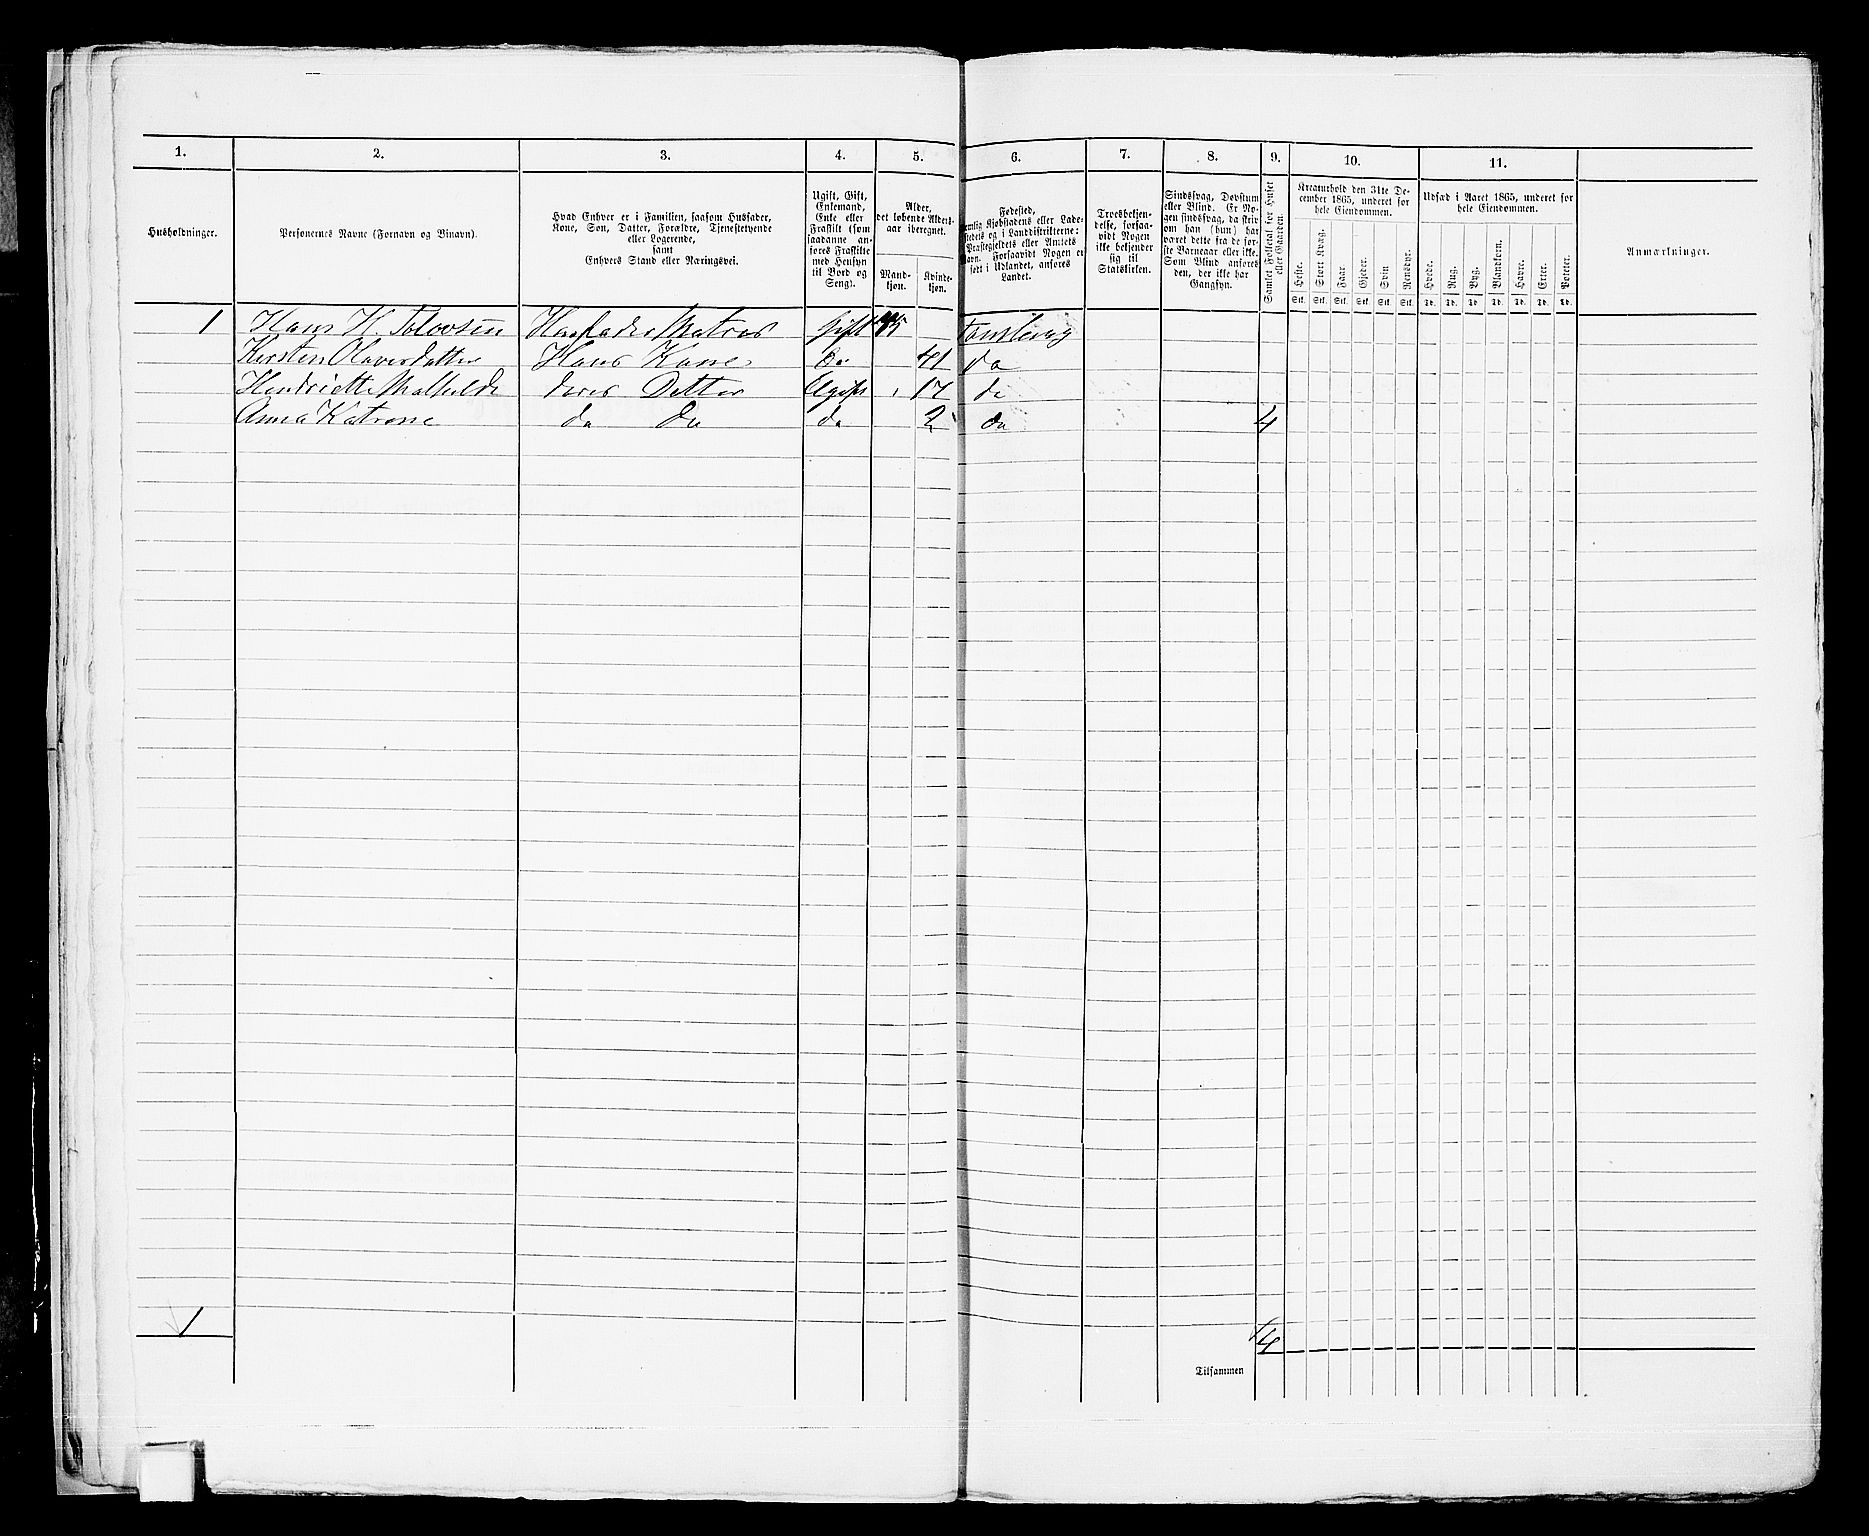 1. 2. 3. 4. 5. 6. 7. 8. 9. 10. 11.
Husholdninger.
Personernes Navne (Fornavn og Binavn).
Hvad Enhver er i Familien, saasom Husfader,
Kone, Søn, Datter, Forældre, Tjenestetyende
eller Logerende,
samt
Enhvers Stand eller Næringsvei.
Ugift, Gift,
Enkemand,
Enke eller
Fraskilt (som
saadanne an-
føres Fraskilte
med Hensyn
til Bord og
Seng).
Alder,
det løbende Alders-
aar iberegnet.
Mand-
kjøn.
Kvinde-
kjøn.
Fødested,
Kjøbstadens eller Lade-
stedets og i Landdistrikterne:
Præstegjeldets eller Amtets
Navn. Forsaavidt Nogen er
født i Udlandet, anføres
Landet.
Troesbekjen-
delse, forsaa-
vidt Nogen
ikke bekjender
sig til
Statskirken.
Sindssvag, Døvstum
eller Blind. Er No-
gen sindssvag, da skriv
om han (hun) har
været dette fra de før-
ste Barneaar eller ikke.
Som Blind anføres
den, der ikke har
Gangsyn.
Samlet Folketal for Huset
eller Gaarden.
Kreaturhold den 31te De-
cember 1865, underet for
hele Eiendommen.
Heste. Stort Kvæg. Faar. Gjeder. Svin Rensdyr.
Stk. Stk. Stk. Stk. Stk. Stk.
Udsæd i Aaret 1865, underet for
hele Eiendommen.
Hvede. Rug. Byg. Blandkorn. Havre. Erter. Poteter.
Td. Td. Td. Td. Td. Td. Td.
Anmærkninger.
1 Hans H. Husfader Matros Gift 45
Kirsten Olavesdatter Hans Kone do 41 do
Henriette Mathilde deres Datter Ugift 17 do
Anna Katrine do do do 2 do 4
1
4
Tilsammen